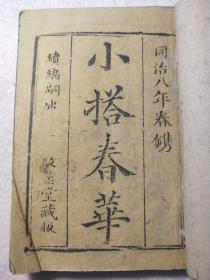 同治八年春鐫
小搭春華
續編嗣出
敬業堂藏板